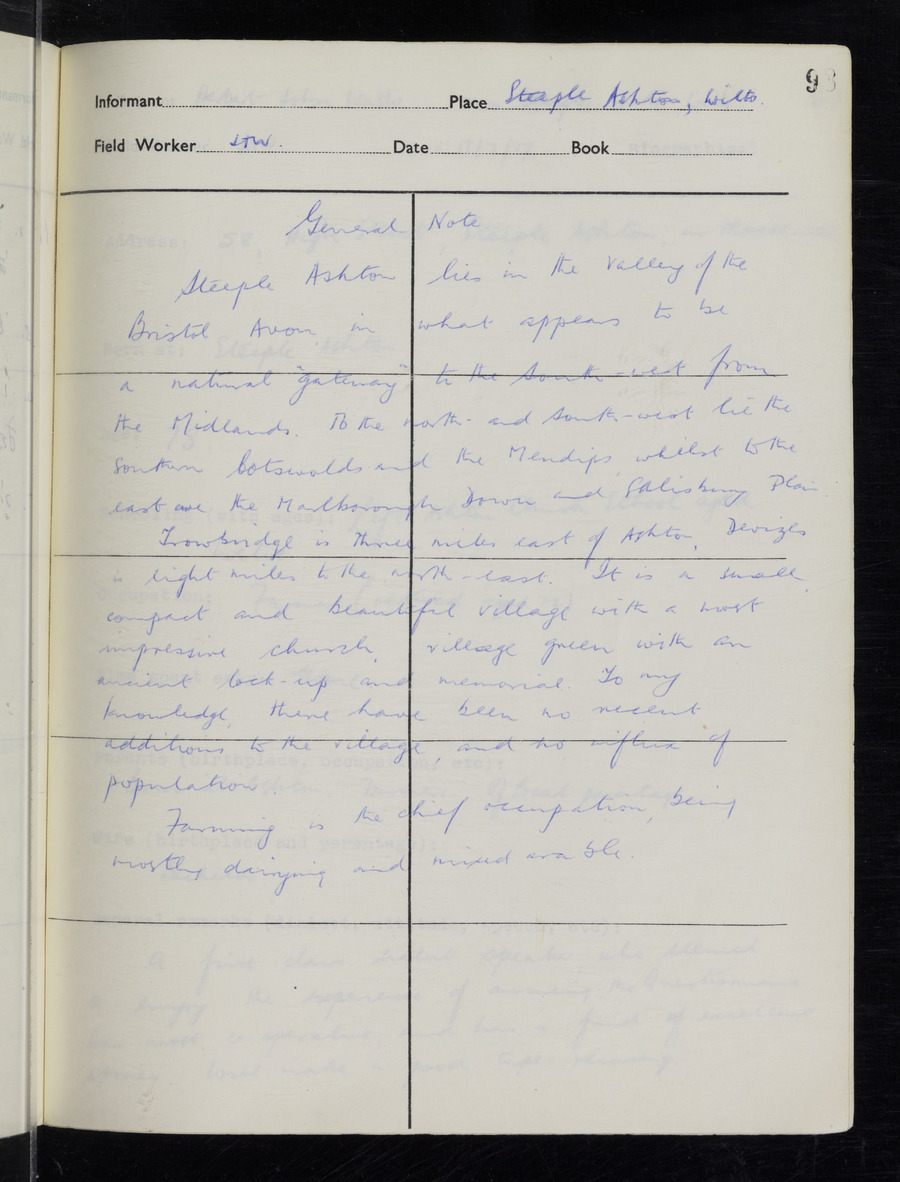 93
Informant Place Steeple Ashton, Wilts.
Field Worker JTW. Date Book
General Note
Steeple Ashton lies in the valley of the
Bristol Avon in what appears to be
a natural "gateway" to the south-west from
the Midlands. To the north- and south-west lie the
Southern Cotswolds and the Mendips, whilst to the
east are the Marlborough Down and Salisbury Plain.
Trowbridge is three miles east of Ashton, Devizes
is eight miles to the north-east. It is a small
compact and beautiful village with a most
impressive church, village green with an
ancient lock-up and memorial. To my
knowledge, there have been no recent
additions to the village, and no influx of
population.
Farming is the chief occupation, being
mostly dairying and mixed arable.